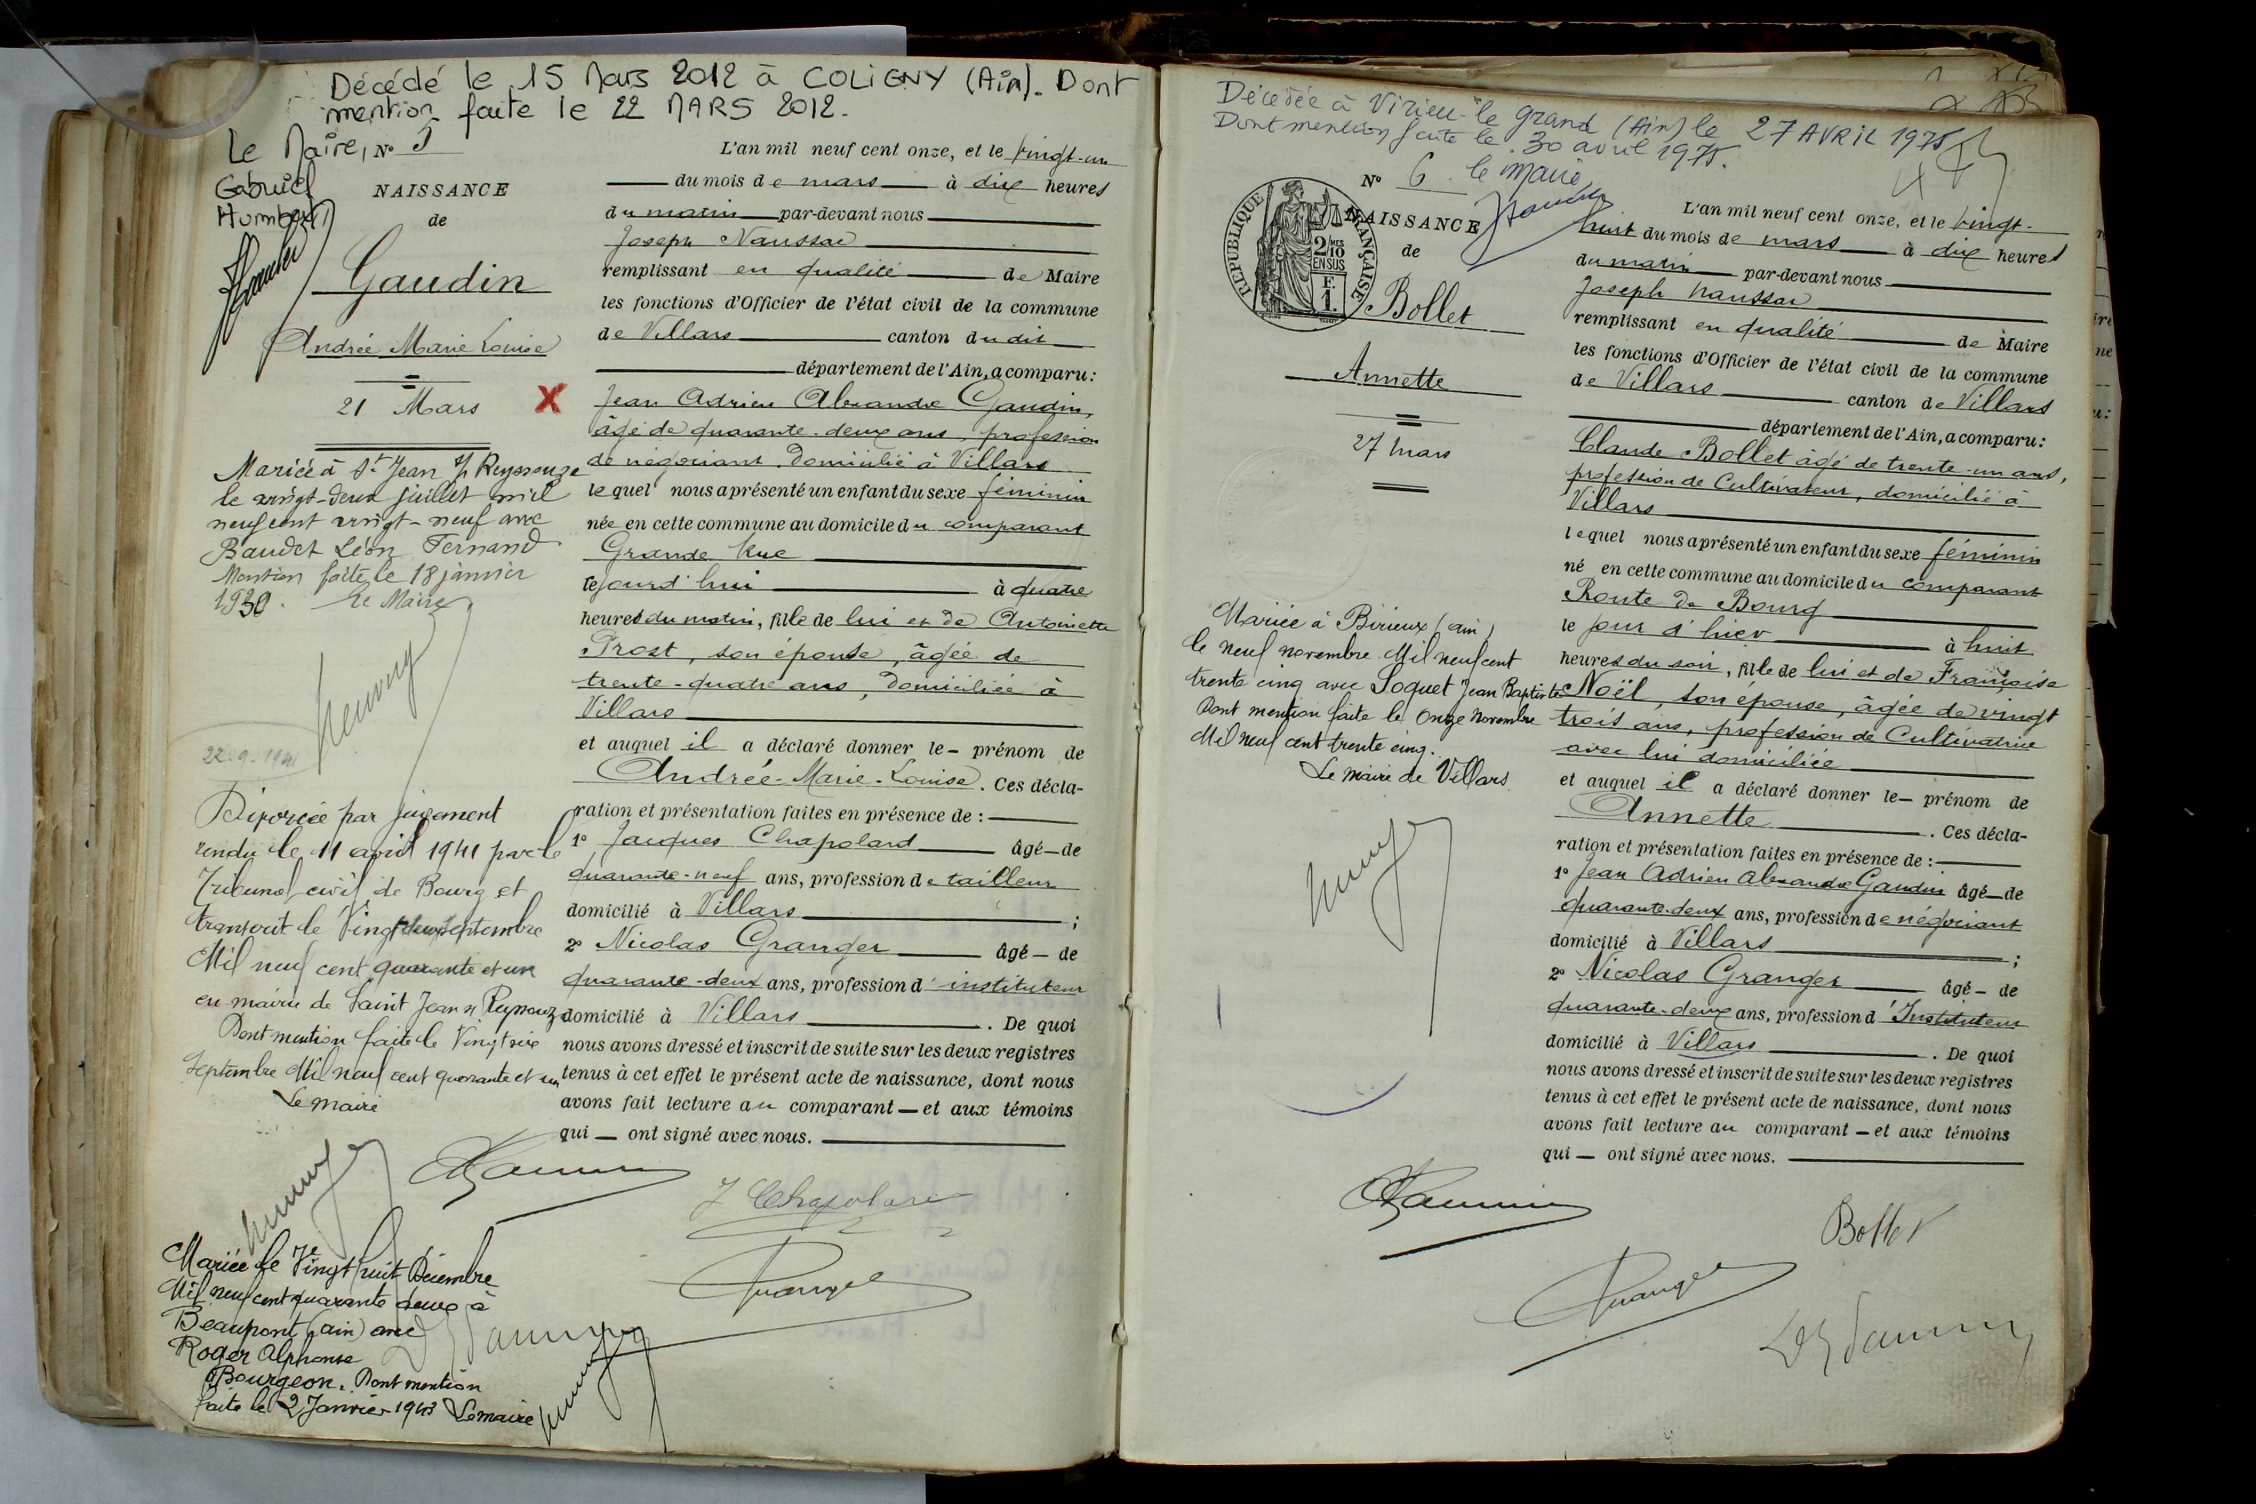 Décédé le 15 Mars 2012 à COLIGNY (Ain). Dont
mention faite le 22 MARS 2012.
Le Maire,
Gabriel
Humbert
N° 5
NAISSANCE
de
Gaudin
Andrée Marie Louise
21 Mars
X
Mariée à St Jean s/ Reyssouze
le vingt-deux juillet mil
neuf cent vingt-neuf avec
Baudet Léon Fernand
Mention faite le 18 janvier
1930. Le Maire
22-9-1941
Divorcée par jugement
rendu le 11 avril 1941 par le
Tribunal civil de Bourg et
transcrit le Vingt deux septembre
Mil neuf cent quarante et un
en mairie de Saint Jean s/ Reyssouze
Dont mention faite le Vingt six
Septembre Mil neuf cent quarante et un
Le maire
Mariée le Vingt huit Décembre
Mil neuf cent quarante deux à
Beaupont (ain) avec
Roger Alphonse
Bourgeon. Dont mention
faite le 2 Janvier 1943 Le maire
L'an mil neuf cent onze, et le vingt-un
du mois de mars à dix heures
du matin par-devant nous
Joseph Naussac
remplissant en qualité de Maire
les fonctions d'Officier de l'état civil de la commune
de Villars canton du dit
département de l'Ain, a comparu:
Jean Adrien Alexandre Gaudin,
âgé de quarante-deux ans, profession
de négociant domicilié à Villars
lequel nous a présenté un enfant du sexe féminin
née en cette commune au domicile du comparant
Grande Rue
cejourd'hui à quatre
heures du matin, fille de lui et de Antoinette
Prost, son épouse, âgée de
trente-quatre ans, domiciliée à
Villars
et auquel il a déclaré donner le prénom de
Andrée-Marie-Louise. Ces décla-
ration et présentation faites en présence de:
1° Jacques Chapolard âgé de
quarante-neuf ans, profession de tailleur
domicilié à Villars;
2° Nicolas Granger âgé de
quarante-deux ans, profession d'instituteur
domicilié à Villars. De quoi
nous avons dressé et inscrit de suite sur les deux registres
tenus à cet effet le présent acte de naissance, dont nous
avons fait lecture au comparant et aux témoins
qui ont signé avec nous.
J Chapolard
Granger
Décédée à Virieu-le grand (Ain) le 27 AVRIL 1975
Dont mention faite le 30 avril 1975.
le Maire
N° 6
RÉPUBLIQUE FRANÇAISE
2/10 EN SUS
F. 1.
NAISSANCE
de
Bollet
Annette
27 mars
Mariée à Birieux (ain)
le neuf novembre Mil neuf cent
trente cinq avec Soquet Jean Baptiste
Dont mention faite le Onze Novembre
Mil neuf cent trente cinq.
Le maire de Villars
L'an mil neuf cent onze, et le vingt-
huit du mois de mars à dix heures
du matin par-devant nous
Joseph Naussac
remplissant en qualité de Maire
les fonctions d'Officier de l'état civil de la commune
de Villars canton de Villars
département de l'Ain, a comparu:
Claude Bollet âgé de trente-un ans,
profession de Cultivateur, domicilié à
Villars
lequel nous a présenté un enfant du sexe féminin
né en cette commune au domicile du comparant
Route de Bourg
le jour d'hier à huit
heures du soir, fille de lui et de Françoise
Noël, son épouse, âgée de vingt
trois ans, profession de Cultivatrice
avec lui domiciliée
et auquel il a déclaré donner le prénom de
Annette. Ces décla-
ration et présentation faites en présence de:
1° Jean Adrien Alexandre Gaudin âgé de
quarante-deux ans, profession de négociant
domicilié à Villars;
2° Nicolas Granger âgé de
quarante-deux ans, profession d'Instituteur
domicilié à Villars. De quoi
nous avons dressé et inscrit de suite sur les deux registres
tenus à cet effet le présent acte de naissance, dont nous
avons fait lecture au comparant et aux témoins
qui ont signé avec nous.
Bollet
Granger